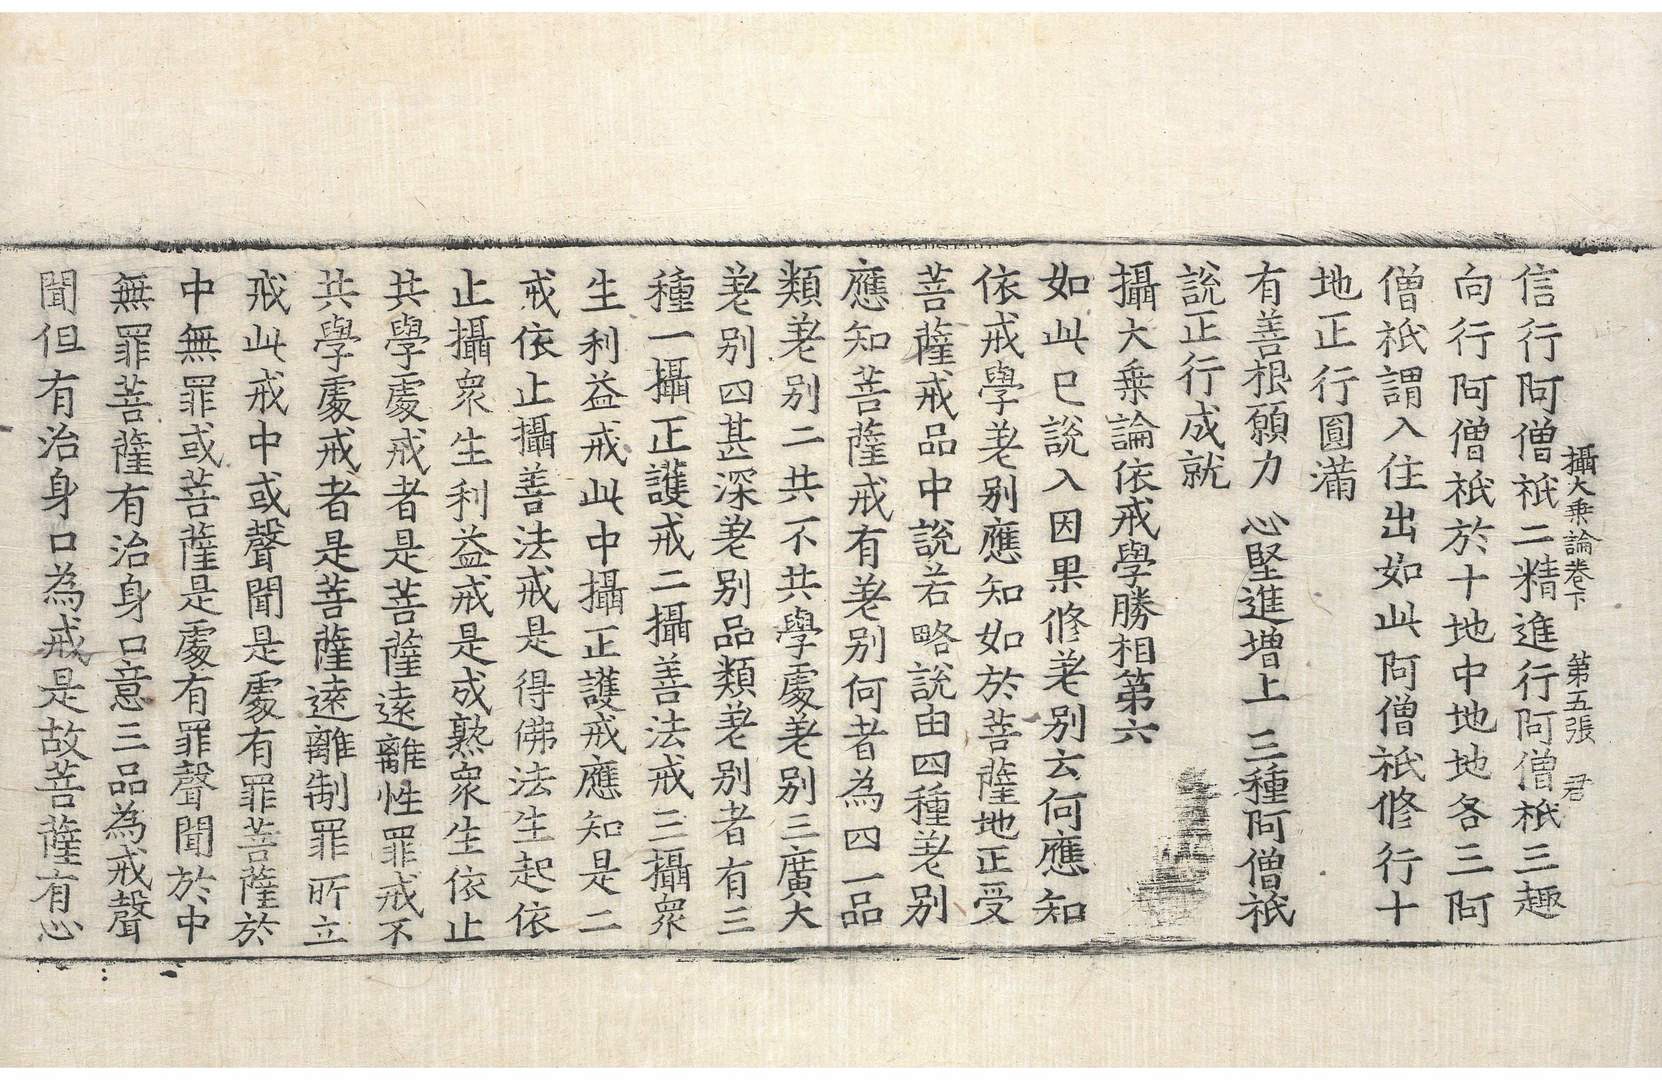 攝大乗論卷下　第五張　君
信行阿僧祇二精進行阿僧祇三趣
向行阿僧祇於十地中地地各三阿
僧祇謂入住出如此阿僧祇修行十
地正行圓滿
有善根願力　心堅進増上　三種阿僧祇
說正行成就
攝大乗論依戒學勝相第六
如此已說入因果修差別云何應知
依戒學差別應知如於菩薩地正受
菩薩戒品中說若略說由四種差別
應知菩薩戒有差別何者為四一品
類差別二共不共學處差別三廣大
差別四甚深差別品類差別者有三
種一攝正護戒二攝善法戒三攝衆
生利益戒此中攝正護戒應知是二
戒依止攝善法戒是得佛法生起依
止攝衆生利益戒是成熟衆生依止
共學處戒者是菩薩遠離性罪戒不
共學處戒者是菩薩遠離制罪所立
戒此戒中或聲聞是處有罪菩薩於
中無罪或菩薩是處有罪聲聞於中
無罪菩薩有治身口意三品為戒聲
聞但有治身口為戒是故菩薩有心